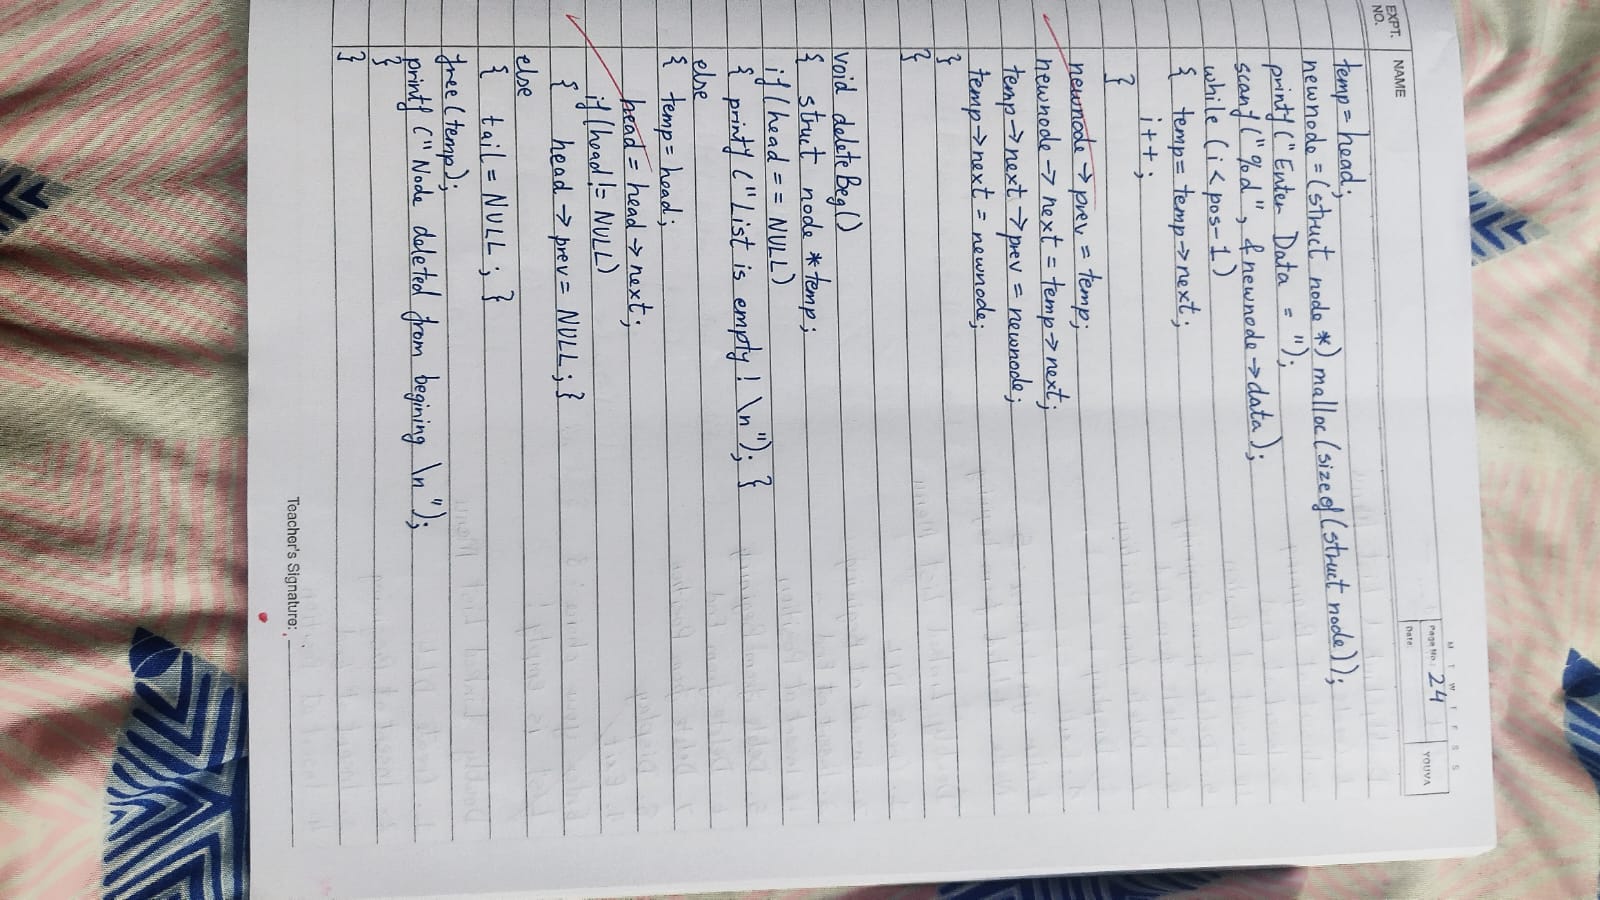 M T W T F S S
Page No.: 24
YOUVA
Date:
EXPT. NO.
NAME
temp = head;
newnode = (struct node *) malloc(sizeof(struct node));
printf("Enter Data = ");
scanf("%d", &newnode->data);
while (i < pos-1)
{ temp = temp->next;
i++;
}
newnode -> prev = temp;
newnode -> next = temp->next;
temp->next->prev = newnode;
temp->next = newnode;
}
}
void deleteBeg()
{ struct node *temp;
if(head == NULL)
{ printf ("List is empty! \n"); }
else
{ temp = head;
head = head -> next;
if(head != NULL)
{ head -> prev = NULL; }
else
{ tail = NULL; }
free(temp);
printf ("Node deleted from begining \n");
}
}
Teacher's Signature: